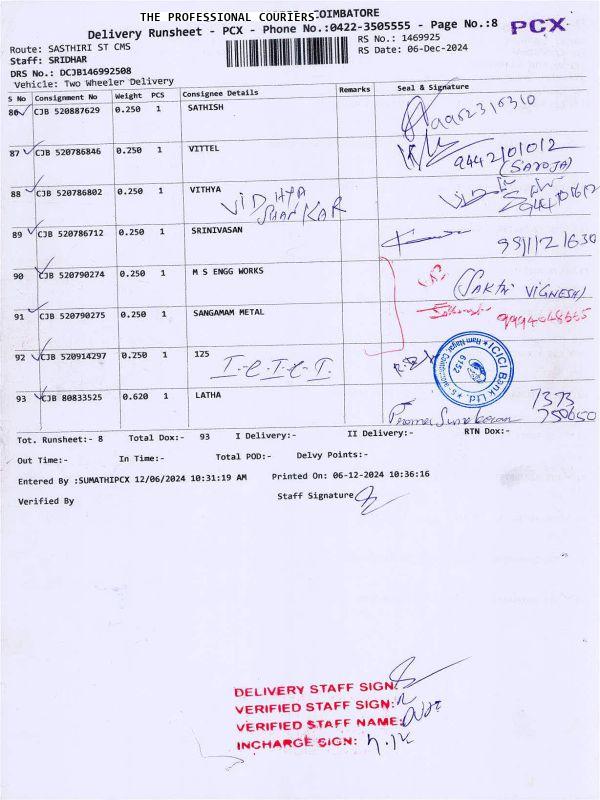 THE PROFESSIONAL COURIERS COIMBATORE
Delivery Runsheet - PCX - Phone No.:0422-3505555 - Page No.:8 PCX
Route: SASTHIRI ST CMS RS No.: 1469925
Staff: SRIDHAR RS Date: 06-Dec-2024
DRS No.: DCJB146992508
Vehicle: Two Wheeler Delivery
S No Consignment No Weight PCS Consignee Details Remarks Seal & Signature
86 CJB 520887629 0.250 1 SATHISH
87 CJB 520786846 0.250 1 VITTEL 9442101012
(SAROJA)
88 CJB 520786802 0.250 1 VITHYA
VIDHYA
SHANKAR
89 CJB 520786712 0.250 1 SRINIVASAN
90 CJB 520790274 0.250 1 M S ENGG WORKS
(SAKTHI VIGNESH)
91 CJB 520790275 0.250 1 SANGAMAM METAL
92 CJB 520914297 0.250 1 125
I-C-I-C-I
ICICI Bank Ltd.
6152
93 CJB 80833525 0.620 1 LATHA
7373
750650
Tot. Runsheet:- 8 Total Dox:- 93 I Delivery:- II Delivery:- RTN Dox:-
Out Time:- In Time:- Total POD:- Delvy Points:-
Entered By :SUMATHIPCX 12/06/2024 10:31:19 AM Printed On: 06-12-2024 10:36:16
Verified By Staff Signature
DELIVERY STAFF SIGN:
VERIFIED STAFF SIGN:
VERIFIED STAFF NAME:
INCHARGE SIGN: